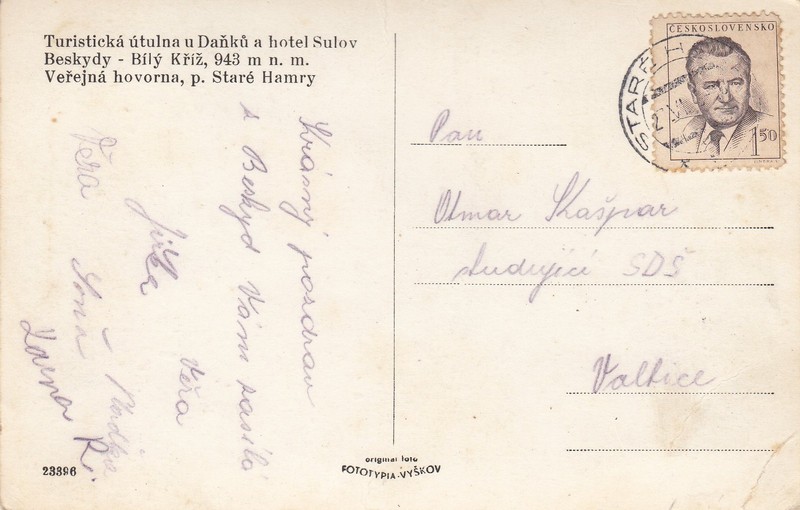 Turistická útulna u Daňků a hotel Sulov
Beskydy - Bílý Kříž, 943 m n. m.
Veřejná hovorna, p. Staré Hamry
ČESKOSLOVENSKO
1 50
STARÉ H
Pan
Otmar Kašpar
studující SDŠ
Valtice
Krásný pozdrav
z Beskyd Vám zasílá
Jirka Věra
Věra Soňa
R.
23396
original foto
FOTOTYPIA-VYŠKOV